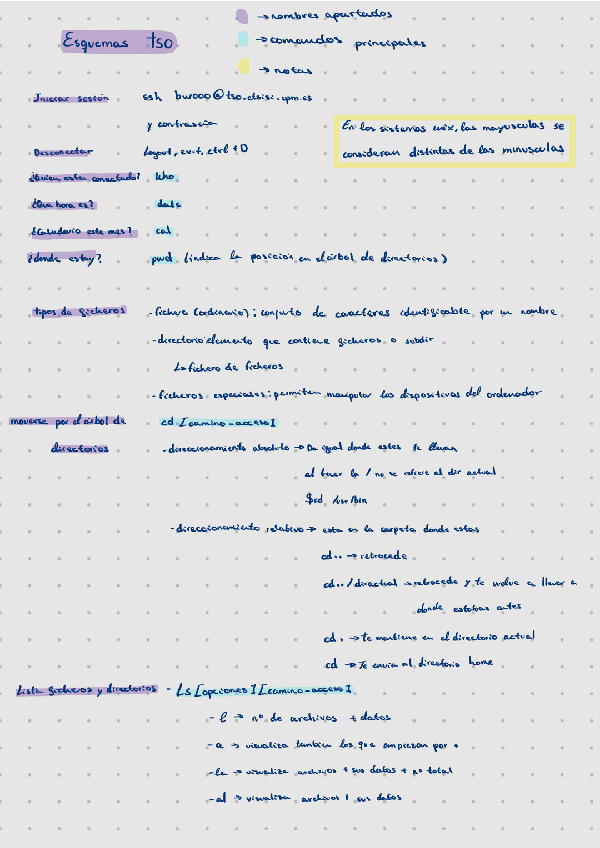 →nombres apartados
Esquemas tso
→comandos principales
→notas
Iniciar sesión ssh bw000@tso.etsisi.upm.es
y contraseña
En los sistemas unix, las mayusculas se
consideran distintas de las minusculas
Desconectar Logout, exit, ctrl+D
¿Quien esta conectado? Who
¿Que hora es? date
¿Calendario este mes? cal
¿donde estoy? pwd (indica la posición en el árbol de directorios)
tipos de ficheros -fichero (ordinario): conjunto de caracteres identificable por un nombre
-directorio:elemento que contiene ficheros o subdir
↳fichero de ficheros
-ficheros especiales: permiten manipular los dispositivos del ordenador
moverse por el árbol de cd [camino-acceso]
directorios -direccionamiento absoluto → Da igual donde estes te llevan
al tener la / no se refiere al dir actual
$cd /usr/bin
-direccionamiento relativo → esta en la carpeta donde estas
cd.. → retrocede
cd../diractual →retrocede y te vuelve a llevar a
donde estabas antes
cd. → te mantiene en el directorio actual
cd → Te envia al directorio home
Lista ficheros y directorios - Ls [opciones] [camino-acceso]
-l → nº de archivos + datos
-a → visualiza tambien los que empiezan por .
-la → visualiza archivos + sus datos + nº total
-al → visualiza archivos + sus datos